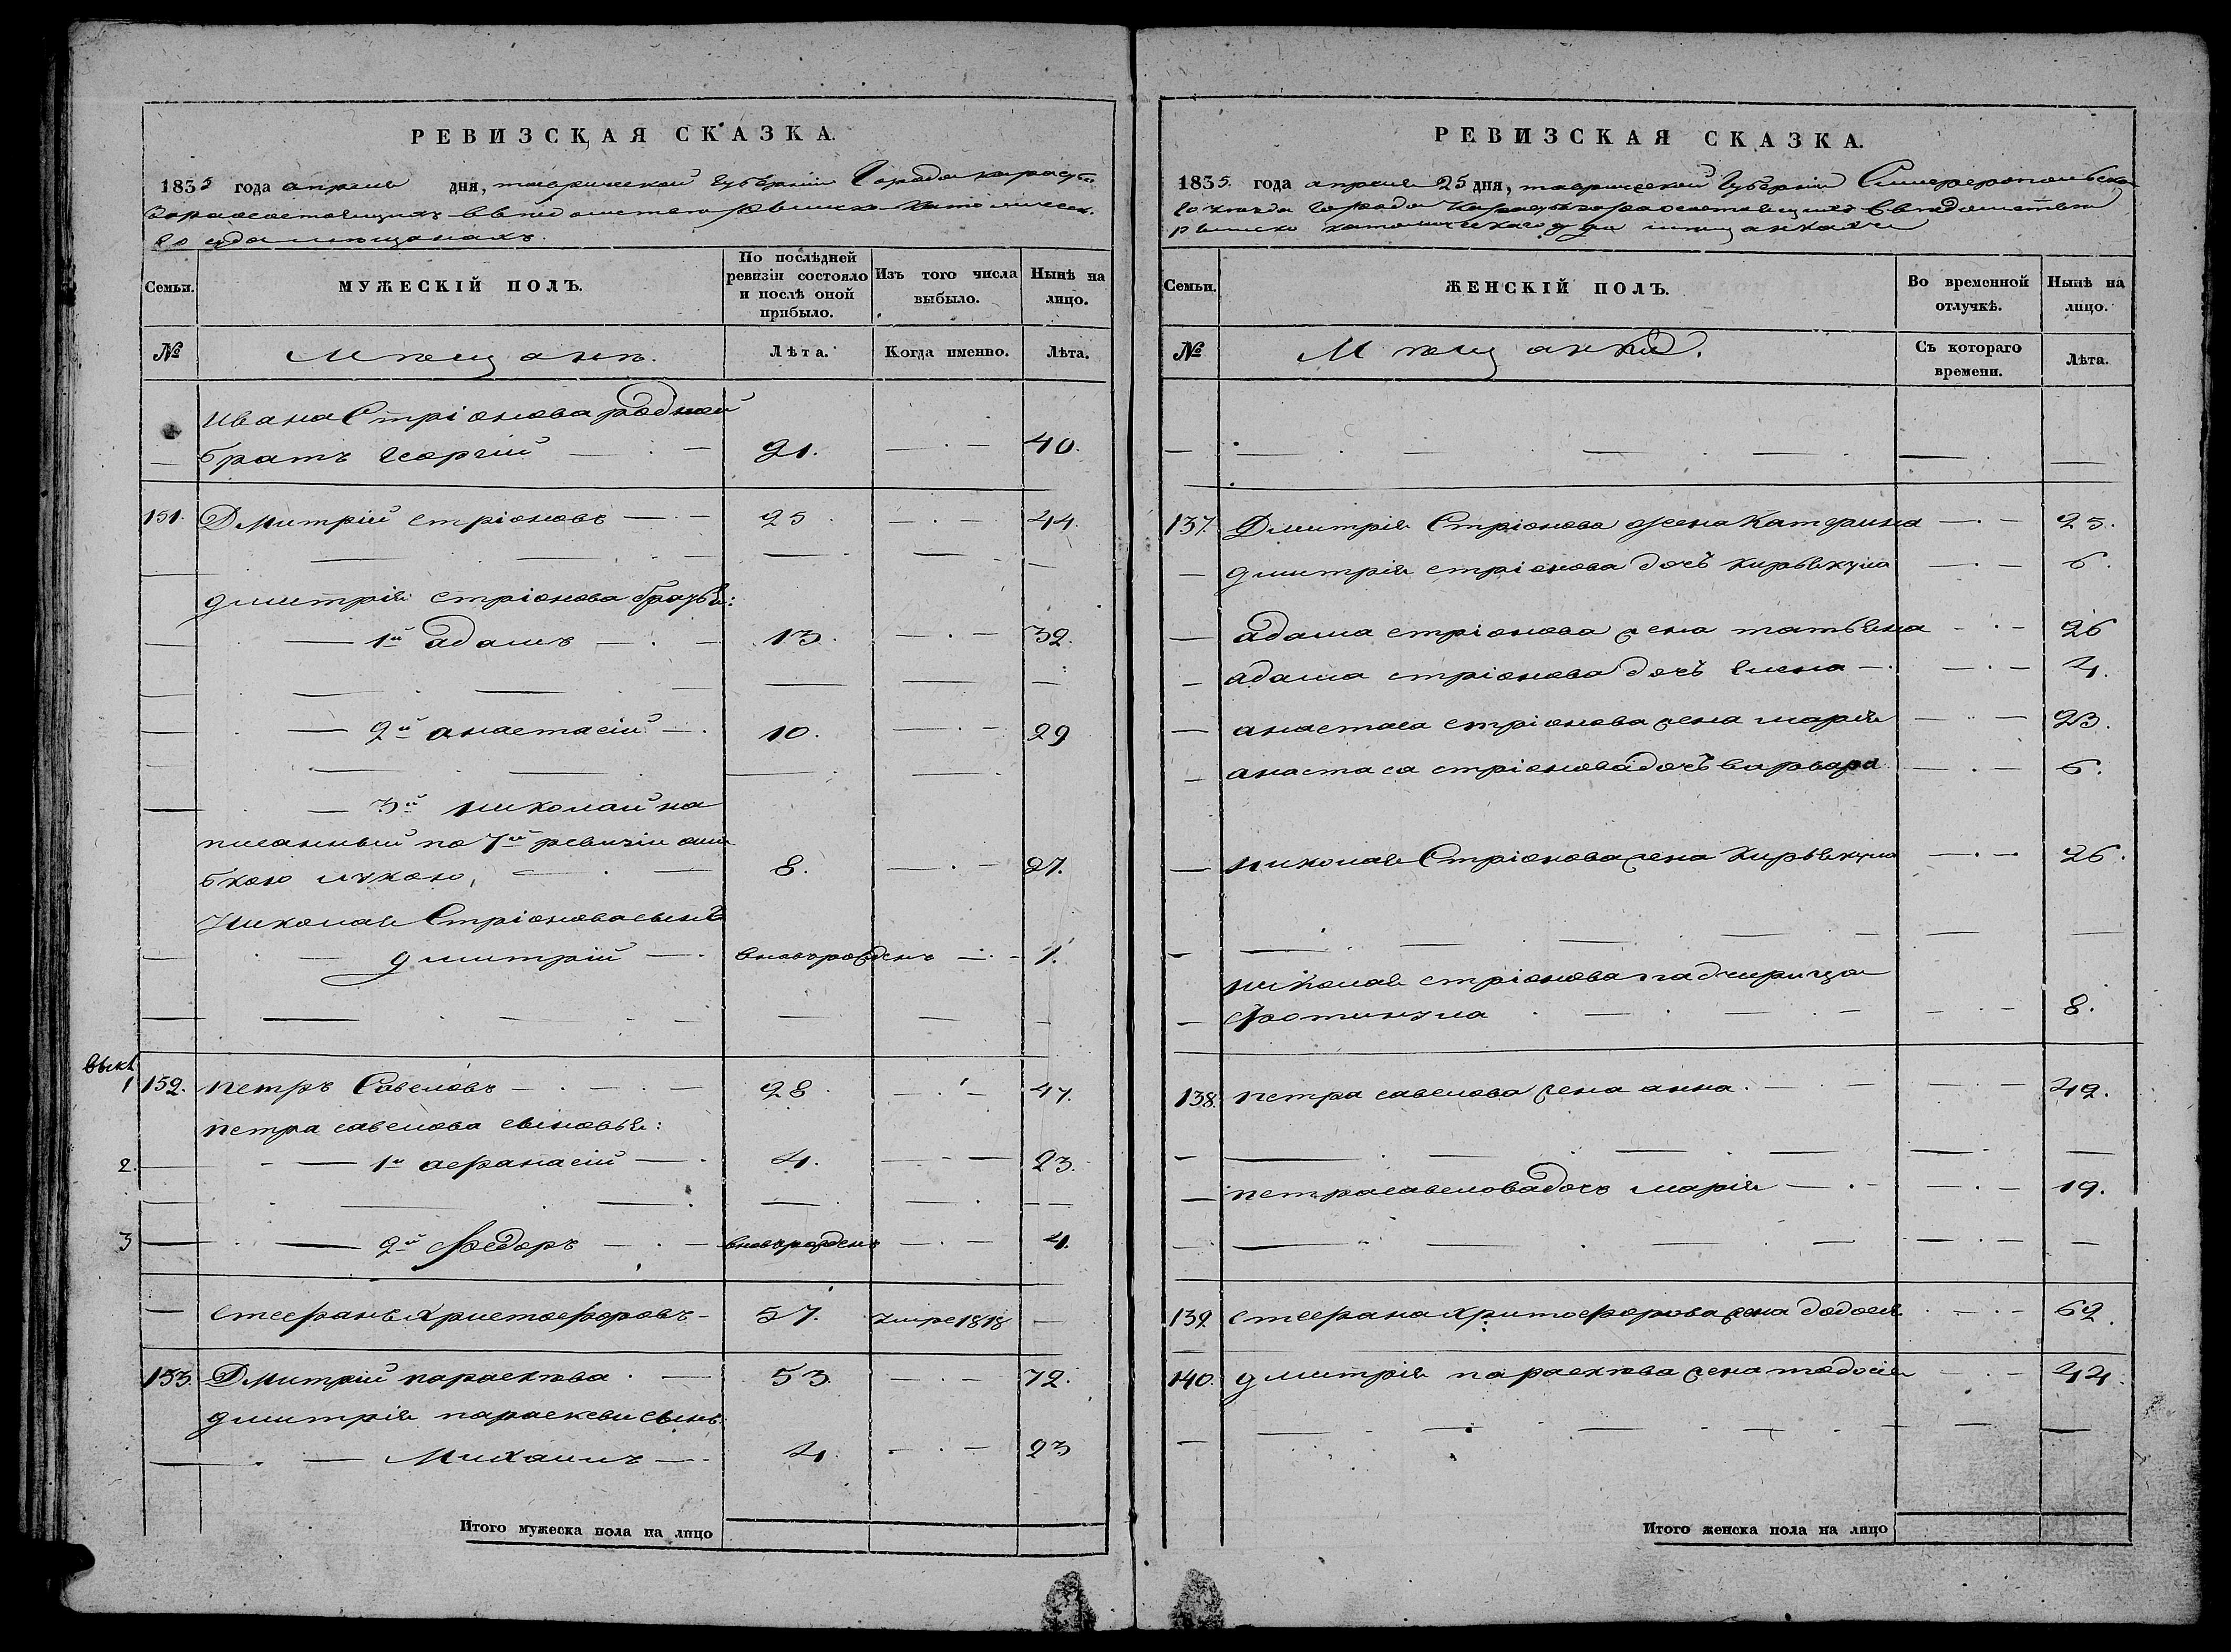 РЕВИЗСКАЯ СКАЗКА.
1835 года апреля дня, таврической Губернии Города карасу-
базара состоящих в ведомстве римско католическ.
го суда мещанах.
Семьи.
МУЖЕСКІЙ ПОЛЪ.
По послѣдней ревизіи состояло и послѣ оной прибыло.
Изъ того числа выбыло.
Нынѣ на лицо.
№
Мѣщанъ.
Лѣта.
Когда именно.
Лѣта.
Ивана Стріонова родной
братъ Георгій 21. 40.
151. Дмитрій стріоновъ 25. 44.
дмитрія стріонова братья:
1й адамъ 13. 32.
2й анастасій 10. 29
3й николай на
писанный по 7й ревизіи оши
бкою лукою, 8. 27.
Николая Стріонова сынъ
дмитрій вновьрожденъ 1.
выкл
1 152. петръ Савеловъ 28 47.
петра савелова сыновья:
2. 1й афанасій 4. 23.
3 2й федоръ вновьрожденъ 4.
стефанъ христофоровъ 57. умре 1818
153. Дмитрій параскева 53. 72.
дмитрія параскевы сынъ
Михаилъ 4 23
Итого мужеска пола на лицо
РЕВИЗСКАЯ СКАЗКА.
1835. года апреля 25 дня, таврической Губерніи Симферопольска
го уезда города Карасубазара состоящихъ в ведомстве
римско католическаго суда мещанкахъ
Семьи.
ЖЕНСКІЙ ПОЛЪ.
Во временной отлучкѣ.
Нынѣ на лицо.
№
Мѣщанки.
Съ котораго времени.
Лѣта.
137. Дмитрія Стріонова жена Катерина 25.
дмитрія стріонова дочь кирьякула 6.
адама стріонова жена татьяна 26
адама стріонова дочь елена 4.
анастаса стріонова жена марія 23.
анастаса стріонова дочь варвара 6.
николая Стріонова жена Кирьякула 26.
николая стріонова падчерица
фотинула 8.
138. петра савелова жена анна 42.
петра савелова дочь марія 19.
139 стефана христофорова жена додося 62.
140. дмитрія параскева жена тодосія 44.
Итого женска пола на лицо